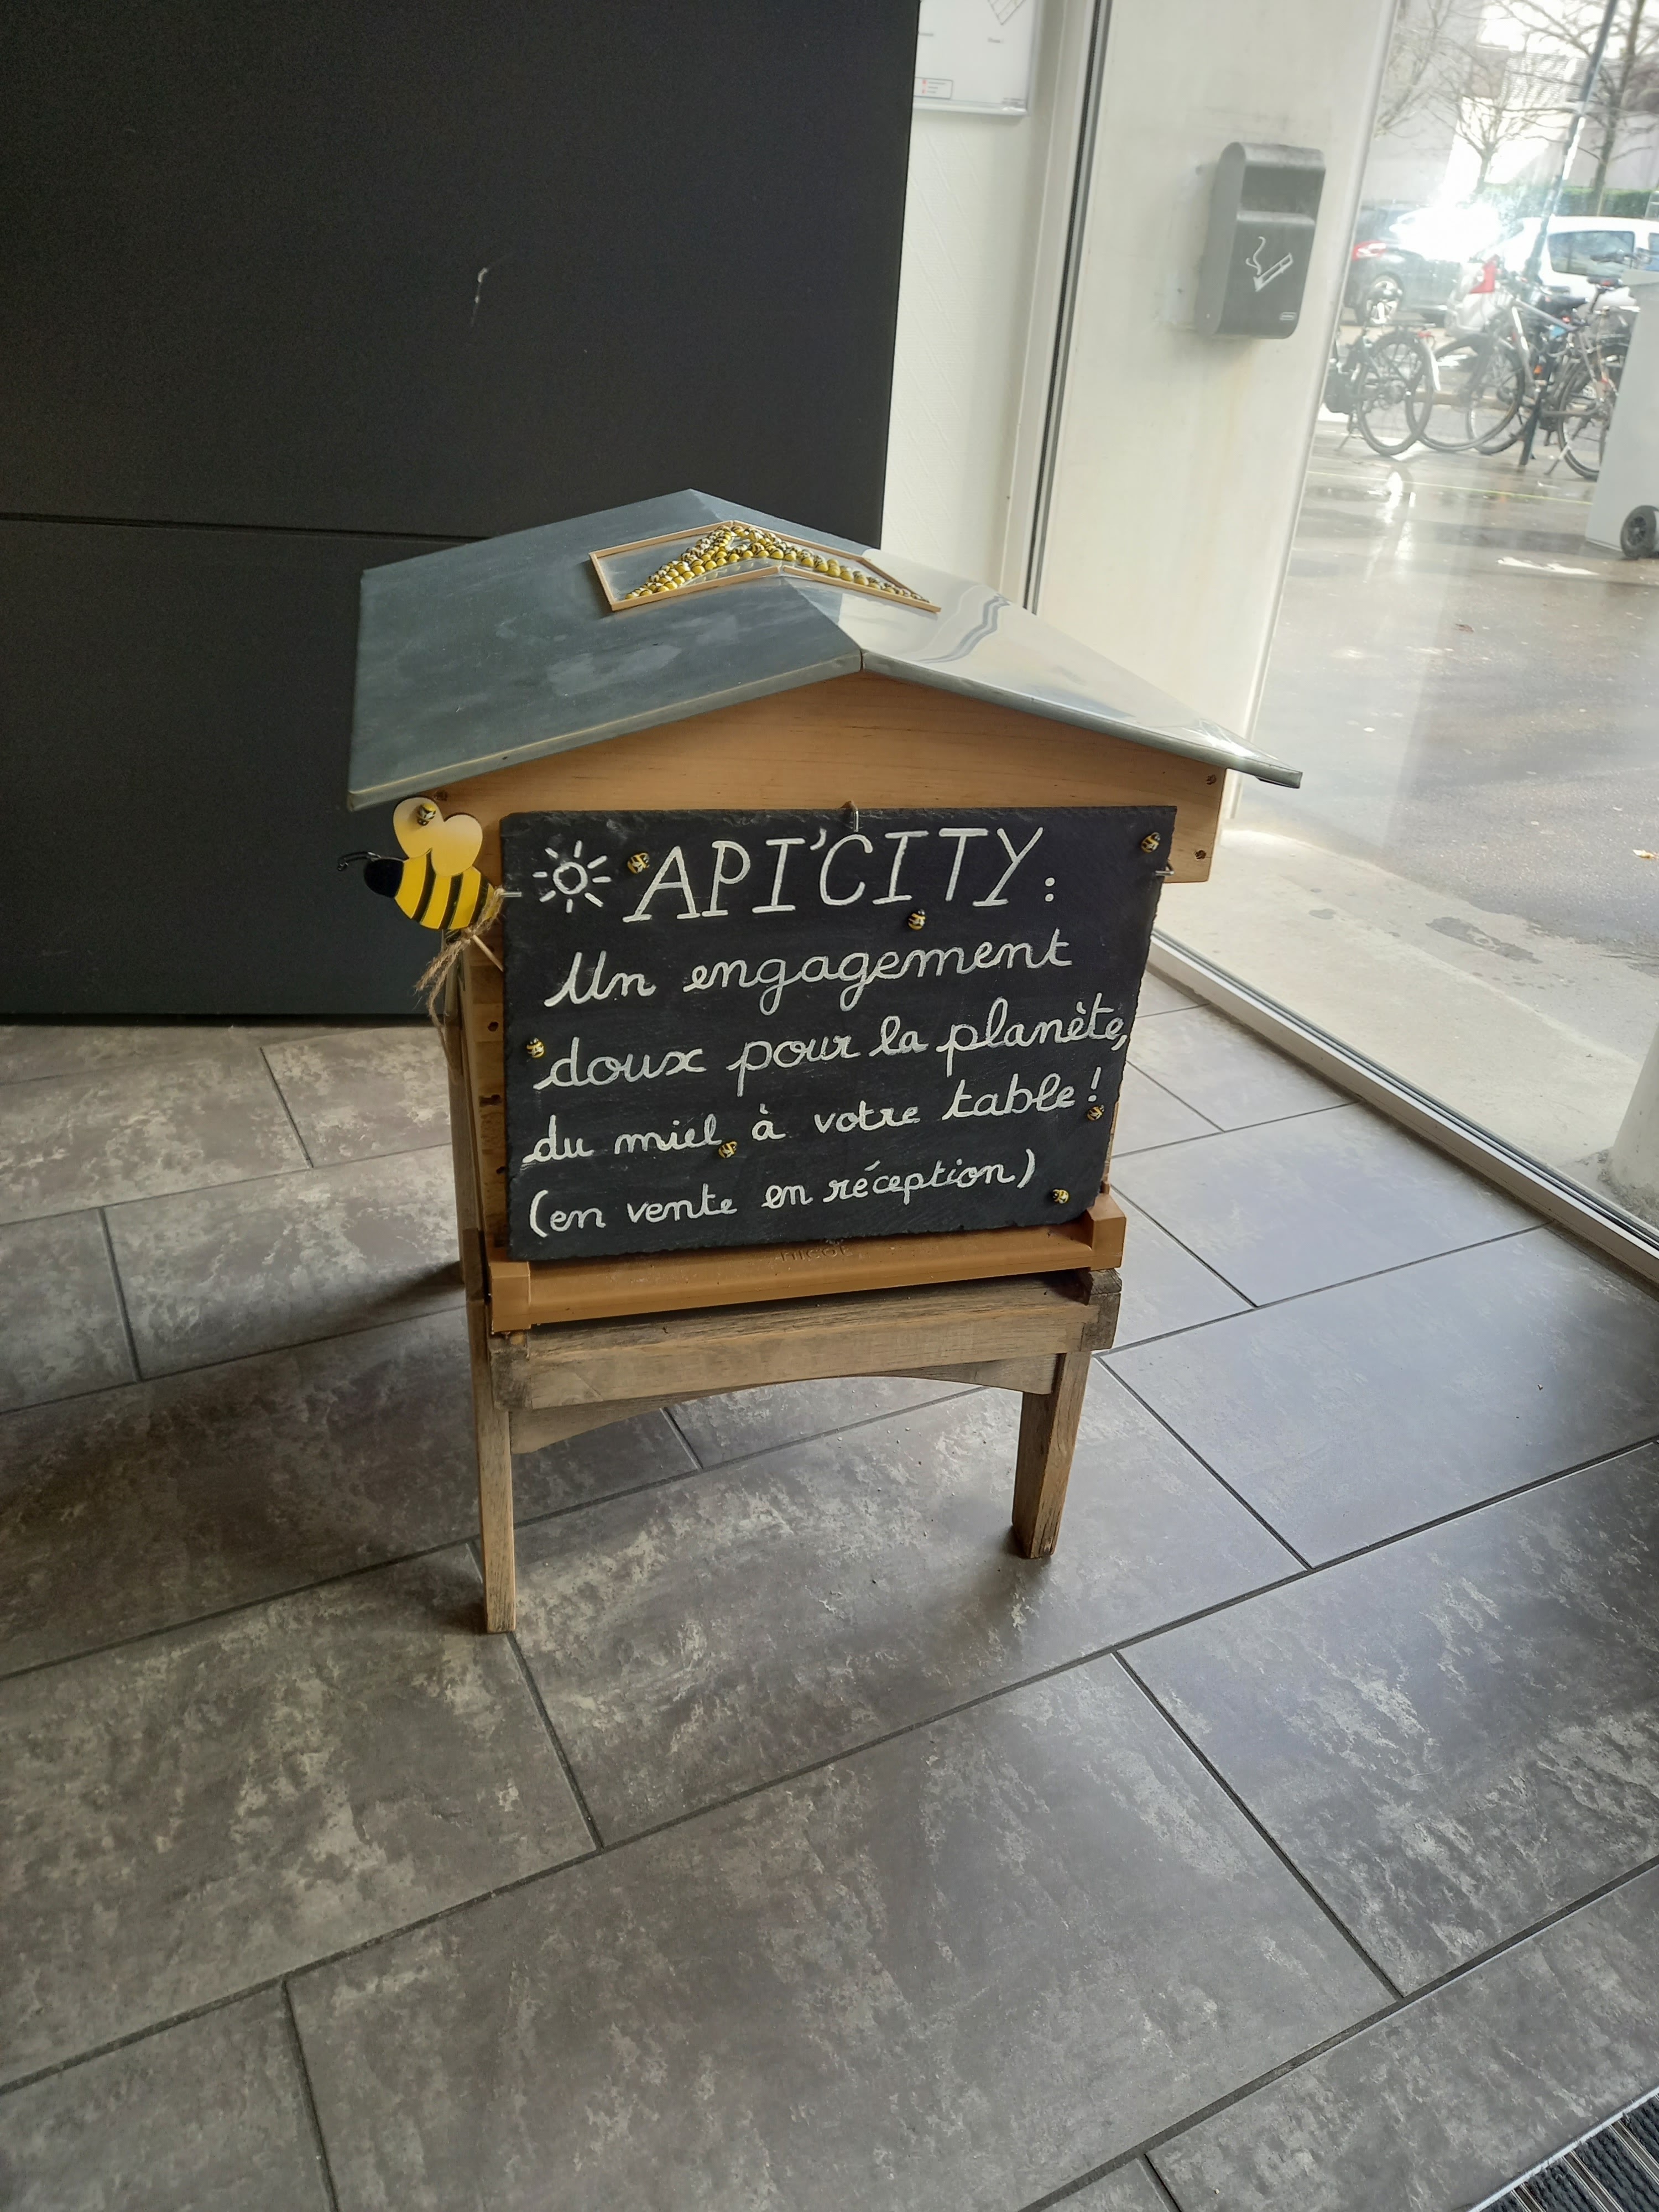 API'CITY:
Un engagement
doux pour la planète,
du miel à votre table!
(en vente en réception)
nicot